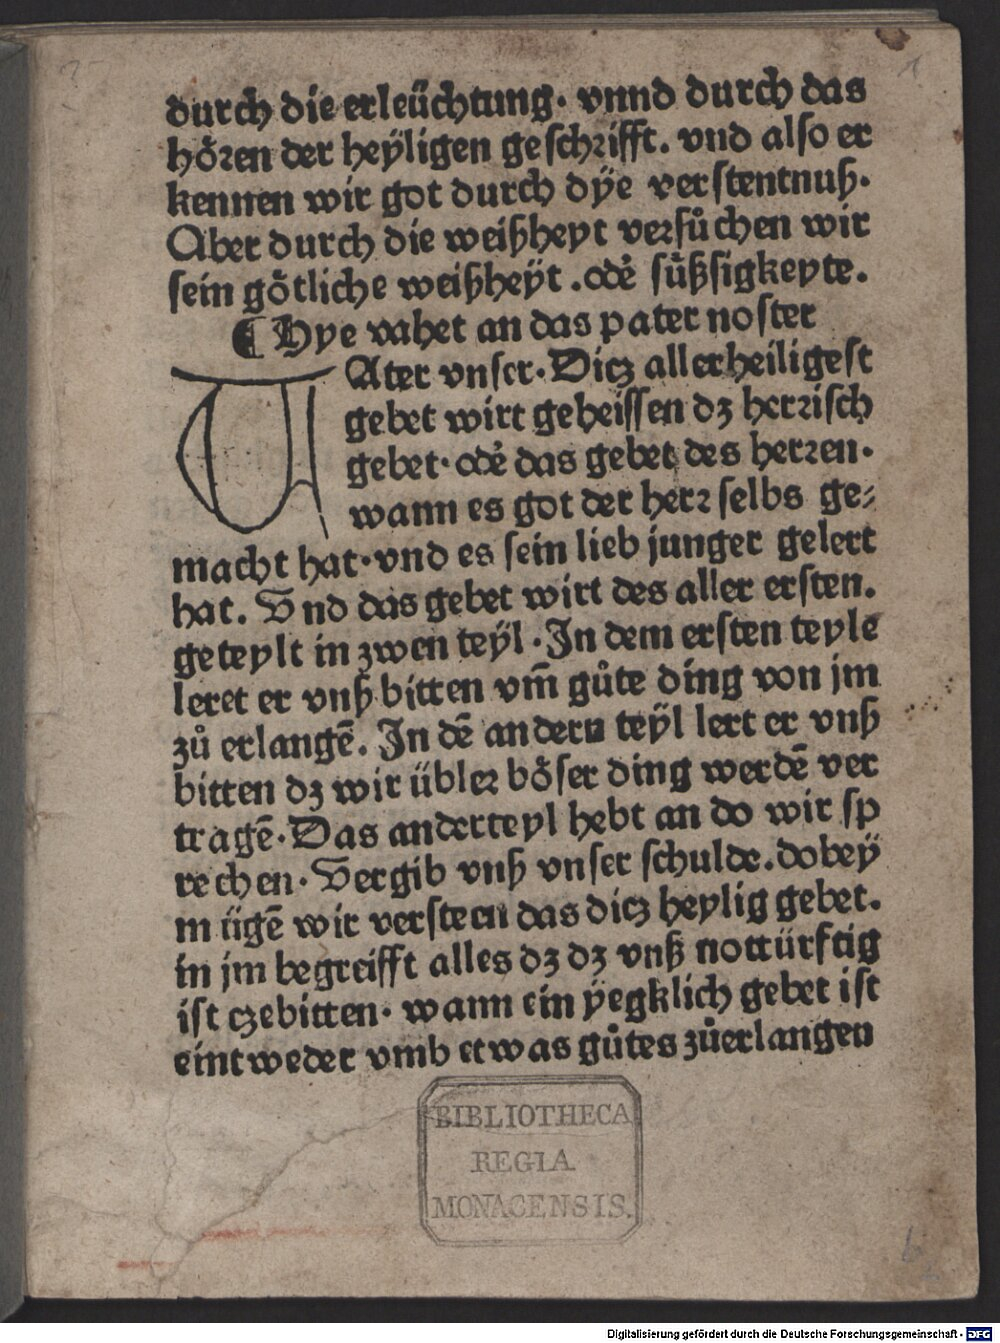 durch die erleüchtung. vnnd durch das
hoͤren der heÿligen geschrifft. vnd also er
kennen wir got durch dÿe verstentnuß.
Aber durch die weißheyt versuͦchen wir
sein goͤtliche weißheÿt. odė suͤßsigkeyte.
¶ Hye vahet an das pater noster
VAter vnser. Dicz allerheiligest
gebet wirt geheissen dz herrisch
gebet. odė das gebet des herren.
wann es got der herr selbs ge⸗
macht hat. vnd es sein lieb junger gelert
hat. Vnd das gebet wirt des aller ersten.
geteylt in zwen teÿl. In dem ersten teyle
leret er vnß bitten vm̄ guͦte ding von jm
zuͦ erlangē. In dē andern teÿl lert er vnß
bitten dz wir übler boͤser ding werdē ver
tragē. Das anderteyl hebt an do wir sp
rechen. Vergib vnß vnser schulde. dobeÿ
mügē wir versteen das dicz heylig gebet.
in jm begreifft alles dz dz vnß nottürftig
ist czebitten. wann ein ÿegklich gebet ist
eintweder vmb etwas guͦtes zuͦerlangen
BIBLIOTHECA
REGIA
MONACENSIS.
Digitalisierung gefördert durch die Deutsche Forschungsgemeinschaft - DFG